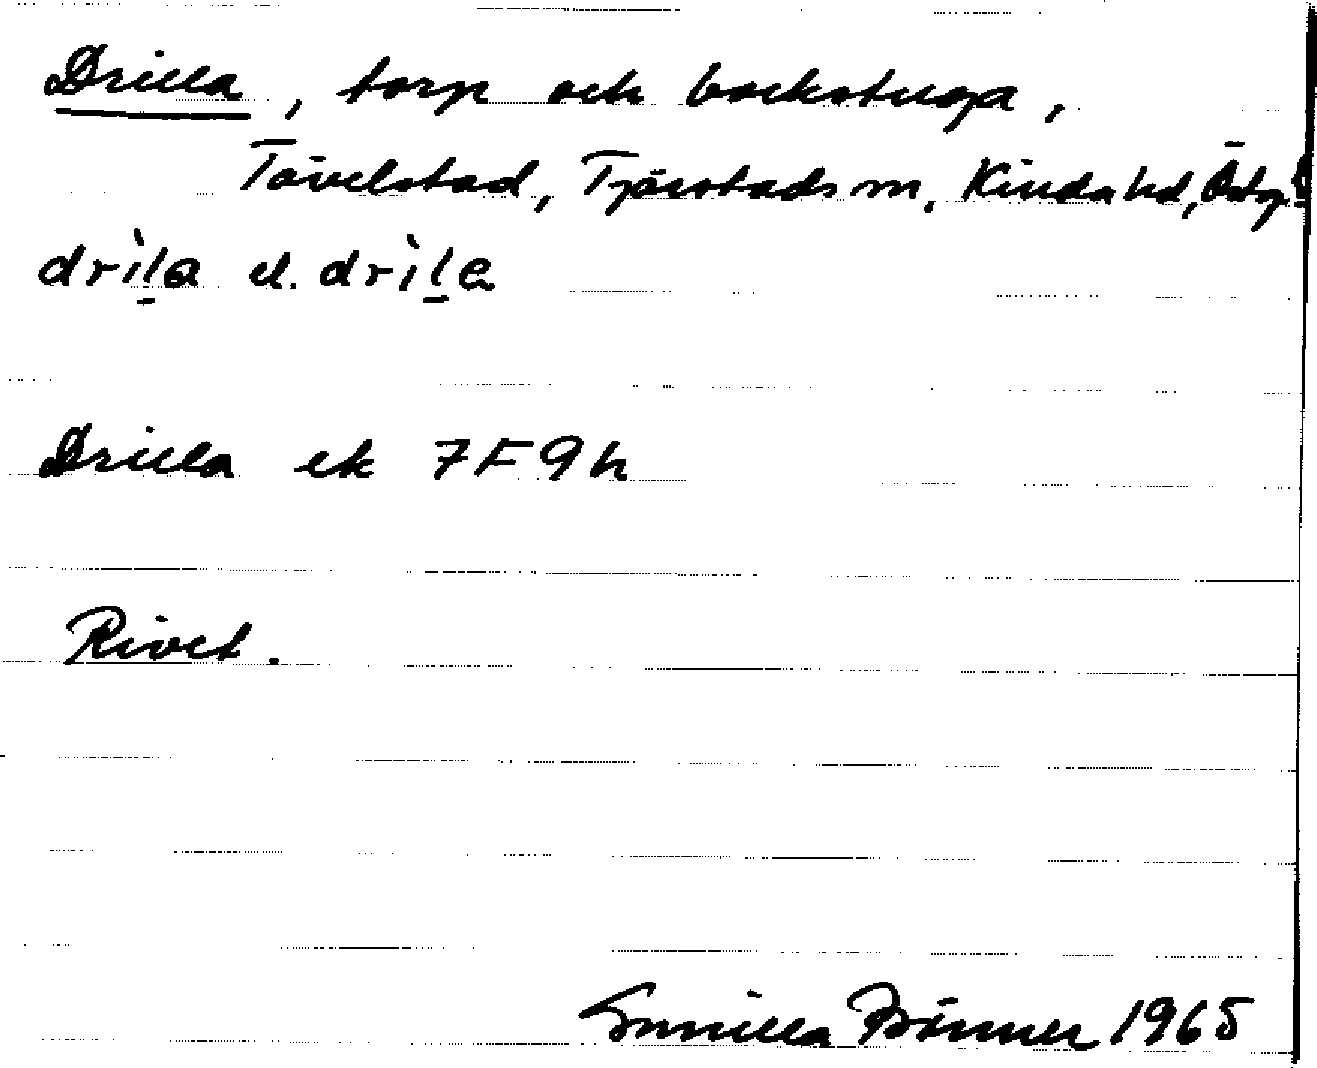 Drilla, torp och backstuga,
Tävelstad, Tjärstads sn, Kinda hd, Östg.
drìl̠a el. drìl̠e
Drilla ek 7F9h
Rivet.
Gunilla 1965